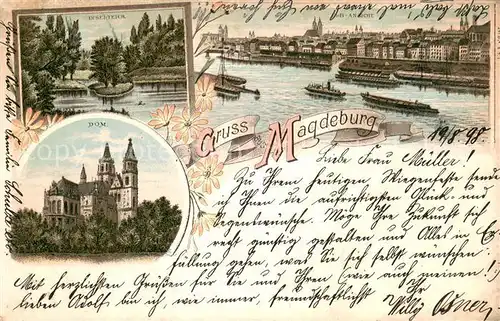 INSELTEICH.
ELB-ANSICHT
DOM.
Gruss Magdeburg
19/8 98
Liebe Frau Müller!
Zu Ihrem heutigen Wiegenfeste sende
ich Ihnen die aufrichtigsten Glück- und
Segenswünsche. Möge Ihre Zukunft sich
recht günstig gestalten und Alles in Er-
füllung gehen, was Sie sich selbst wünschen.
Mit herzlichsten Grüßen für Sie und Ihren (wie auch meinen!)
lieben Adolf bin ich, wie immer, freundschaftlichst Ihr
Willy